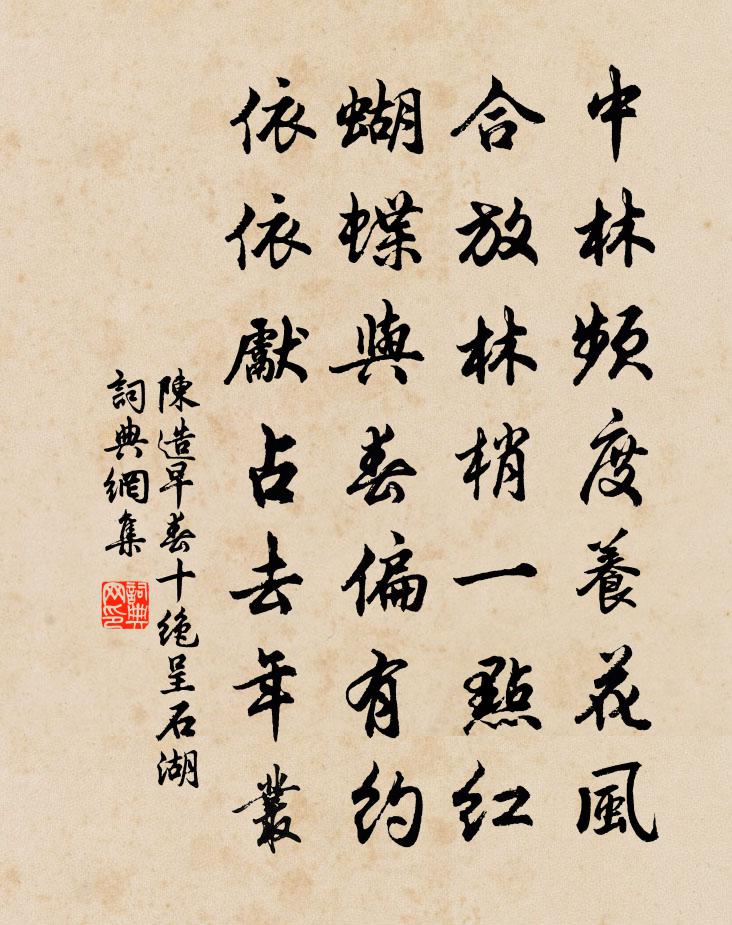 中林頻度養花風
合放林梢一點紅
蝴蝶與春偏有約
依依獻占去年叢
陳造早春十絶呈石湖
詞典網集
詞典网印